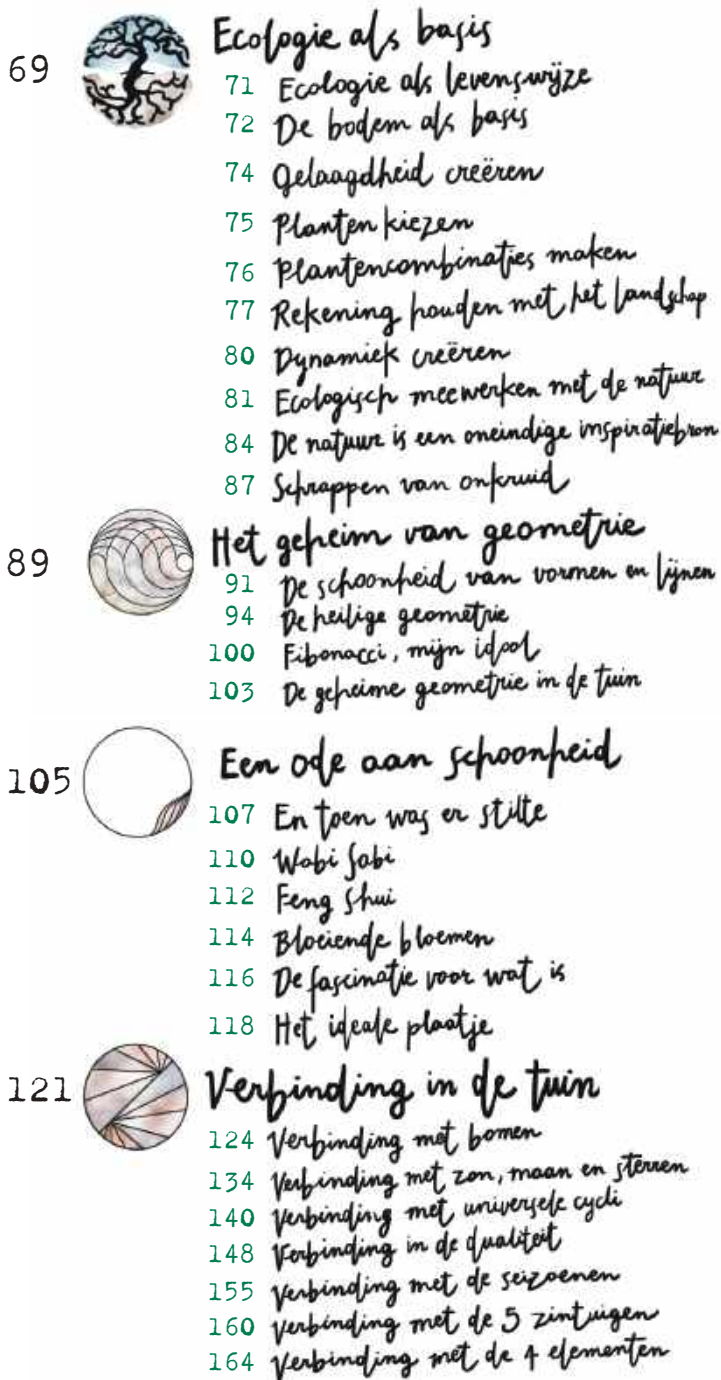 69 Ecologie als basis
71 Ecologie als levenswijze
72 De bodem als basis
74 Gelaagdheid creëren
75 Planten kiezen
76 Plantencombinaties maken
77 Rekening houden met het landschap
80 Dynamiek creëren
81 Ecologisch meewerken met de natuur
84 De natuur is een oneindige inspiratiebron
87 Schrappen van onkruid
89 Het geheim van geometrie
91 De schoonheid van vormen en lijnen
94 De heilige geometrie
100 Fibonacci, mijn idool
103 De geheime geometrie in de tuin
105 Een ode aan schoonheid
107 En toen was er stilte
110 Wabi Sabi
112 Feng Shui
114 Bloeiende bloemen
116 De fascinatie voor wat is
118 Het ideale plaatje
121 Verbinding in de tuin
124 Verbinding met bomen
134 Verbinding met zon, maan en sterren
140 Verbinding met universele cycli
148 Verbinding in de dualiteit
155 Verbinding met de seizoenen
160 Verbinding met de 5 zintuigen
164 Verbinding met de 4 elementen